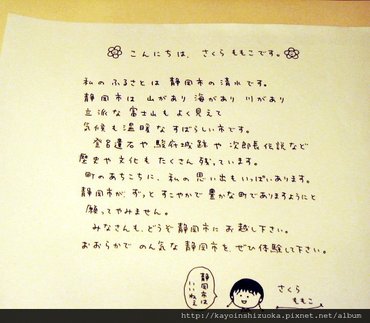 こんにちは、さくらももこです。
私のふるさとは静岡市の清水です。
静岡市は 山があり 海があり 川があり
立派な富士山もよく見えて
気候も温暖なすばらしい市です。
登呂遺石や駿府城跡や次郎長伝説など
歴史や文化もたくさん残っています。
町のあちこちに、私の思い出もいっぱいあります。
静岡市が、ずっとすこやかで豊かな町でありますようにと
願ってやみません。
みなさんも、どうぞ静岡市にお越し下さい。
おおらかでのん気な静岡市を、ぜひ体験して下さい。
静岡市は
いいねェ
さくら
ももこ
http://kayoinshizuoka.pixnet.net/album